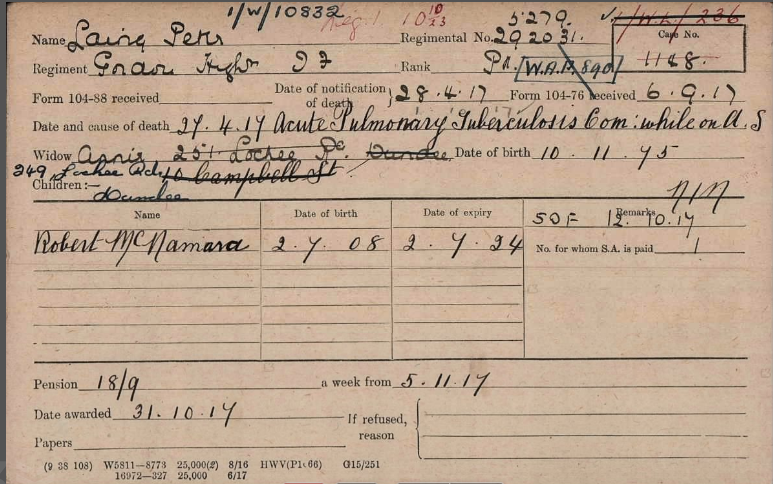 1/W/10832 Regt. 10 10/23 5279. 1/W.L/236
Name Laing Peter Regimental No. 292031. Case No.
Regiment Gordon Highrs Rank Pte. W.A.P. 890 1188.
Form 104-88 received Date of notification of death 28.4.17 Form 104-76 received 6.9.17
Date and cause of death 27.4.17 Acute Pulmonary Tuberculosis Com: while on A.S
Widow Annie 251 Lochee Rd. Dundee Date of birth 10.11.75
249 Lochee Rd 10 Campbell St
Children:— Dundee
Name Date of birth Date of expiry Remarks
SOF 12.10.17
Robert McNamara 2.7.08 2.7.24 No. for whom S.A. is paid 1
Pension 18/9 a week from 5.11.17
Date awarded 31.10.17 If refused, reason
Papers
(9 38 108) W5811—8773 25,000(2) 8/16 HWV(P1466) G15/251
16972—327 25,000 6/17